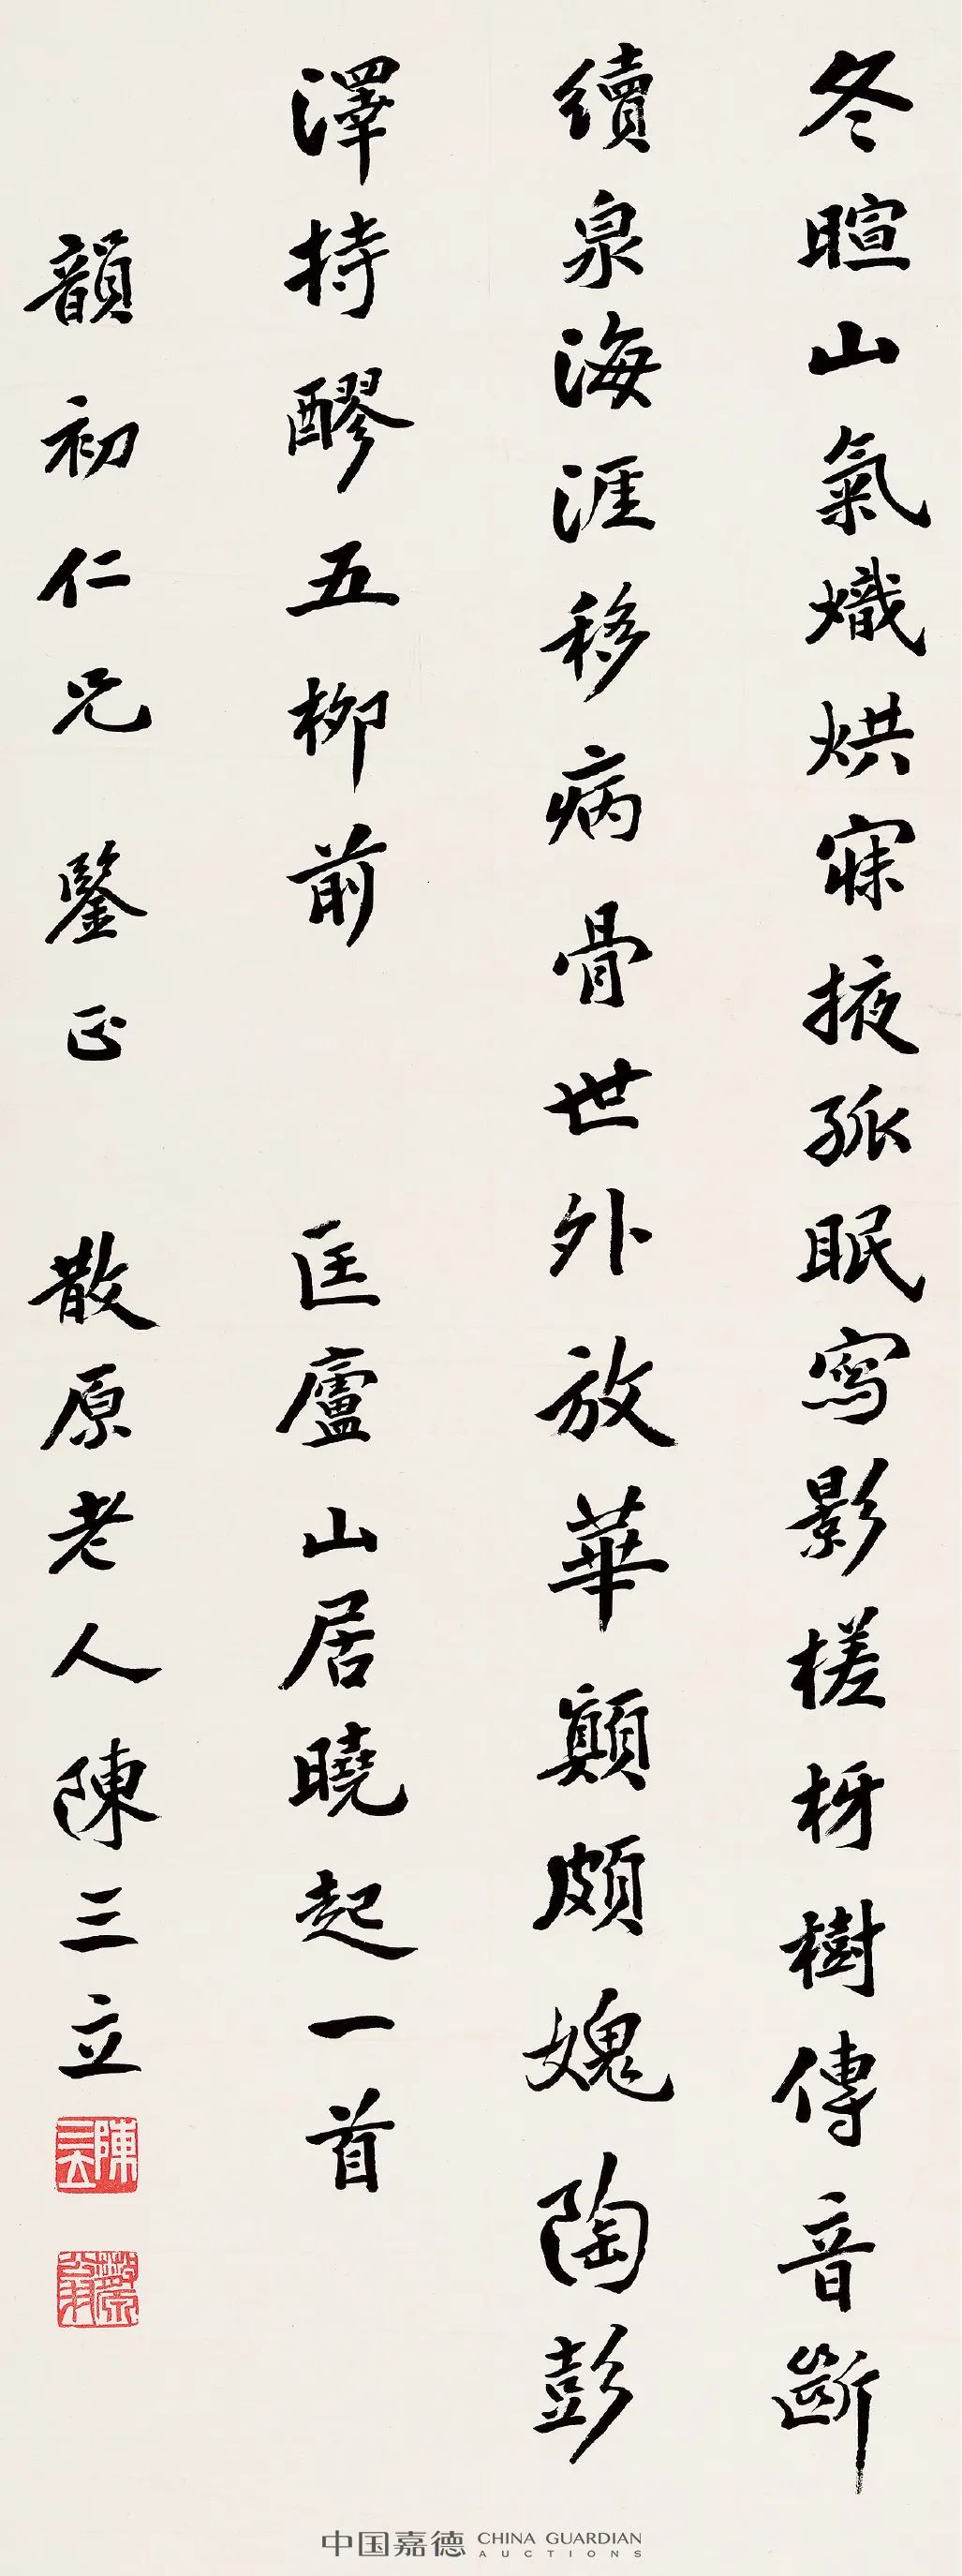 冬暄山氣熾烘寐掖孤眠寫影槎枒樹傳音斷
續泉海涯移病骨世外放華顛頗媿陶彭
澤持醪五柳前　匡廬山居曉起一首
韻初仁兄　鑒正　散原老人陳三立
陳三立
散原
中国嘉德 CHINA GUARDIAN
AUCTIONS